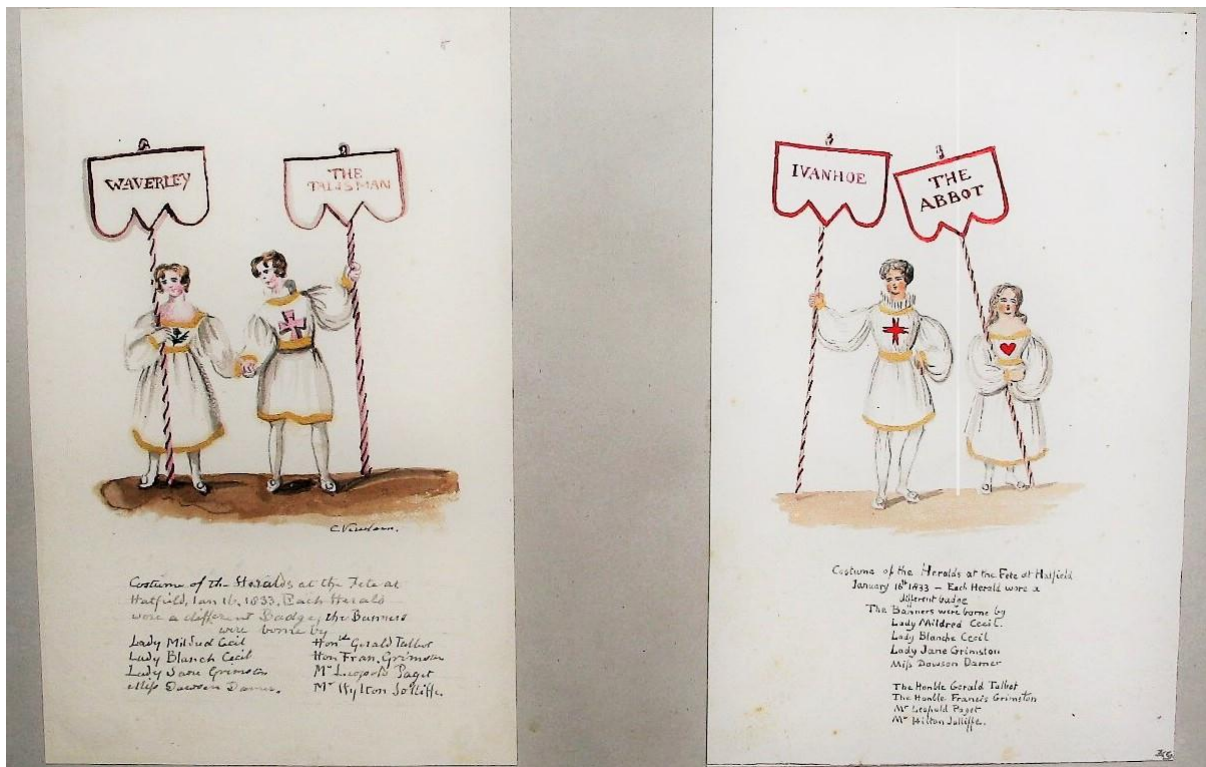 WAVERLEY
THE
TALISMAN
Costume of the Heralds at the Fete at
Hatfield, Jan 16, 1833. Each Herald
wore a different Badge, the Banners
were borne by
Lady Mildred Cecil
Lady Blanch Cecil
Lady Jane Grimston
Miss Dawson Damer.
Honble Gerald Talbot
Hon Fran. Grimston
Mr Leopold Paget
Mr Hylton Jolliffe.
IVANHOE
THE
ABBOT
Costume of the Heralds at the Fete at Hatfield
January 16th 1833 – Each Herald wore a
different badge
The Banners were borne by
Lady Mildred Cecil.
Lady Blanche Cecil
Lady Jane Grimston
Miss Dawson Damer
The Honble Gerald Talbot
The Honble Francis Grimston
Mr Leopold Paget
Mr Hilton Jolliffe.